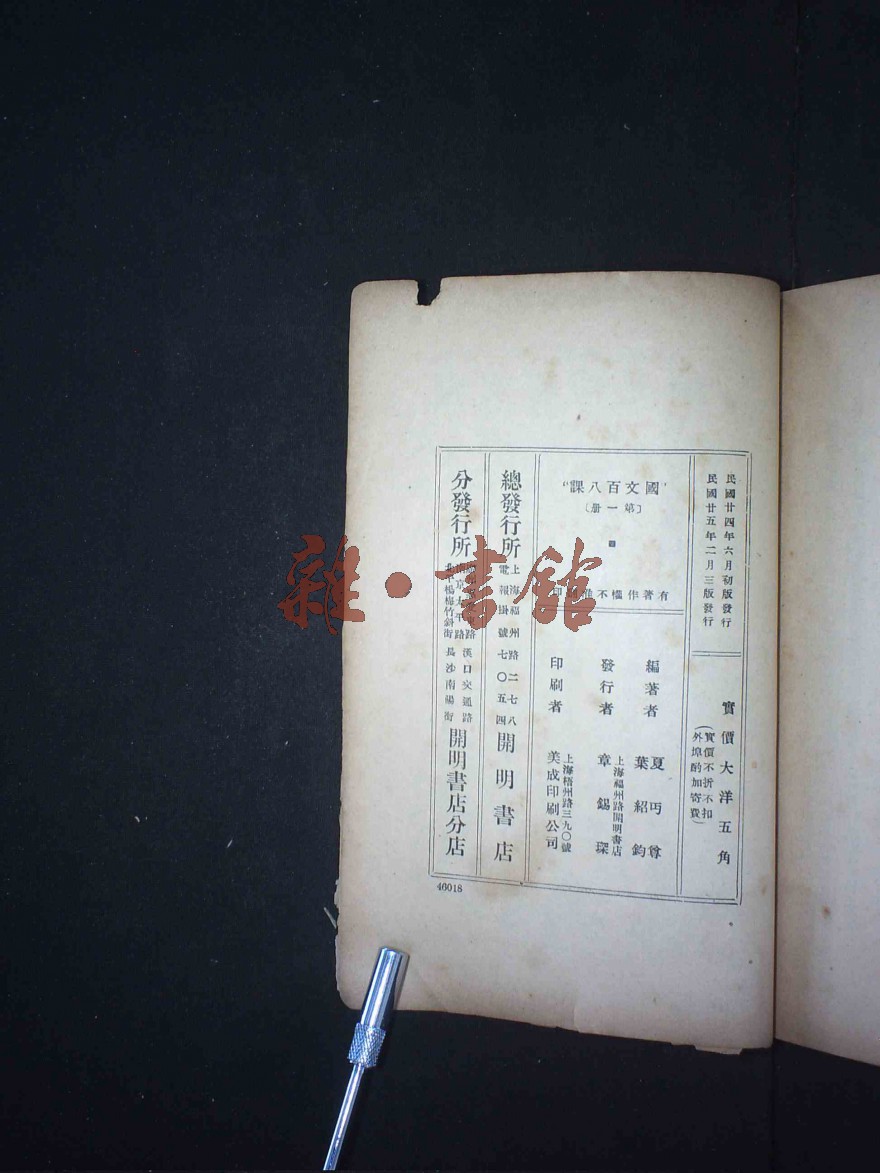 民國廿四年六月初版發行
民國廿五年二月三版發行
實價大洋五角
（實價不折不扣
外埠酌加寄費）
"國文百八課"
〔第一册〕
有著作權不准翻印
編著者
夏丏尊
葉紹鈞
發行者
上海福州路開明書店
章錫琛
印刷者
上海梧州路三九〇號
美成印刷公司
總發行所
上海福州路二七八
電報掛號七〇五四
開明書店
分發行所
南京太平路
楊梅竹斜街
漢口交通路
長沙南陽街
開明書店分店
46018
雜·書館